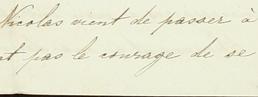 Nicolas vient de passer à
nt pas le courage de se